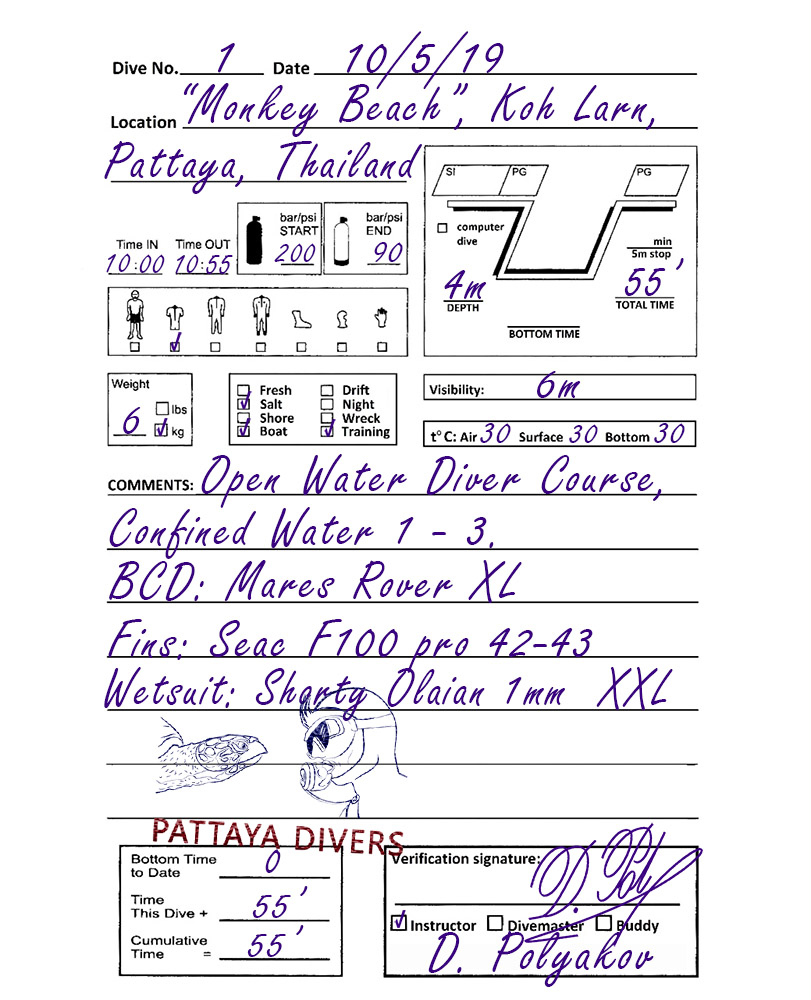 Dive No. 1 Date 10/5/19
Location "Monkey Beach", Koh Larn,
Pattaya, Thailand
SI PG PG
computer dive
min
5m stop
4m
DEPTH
55'
TOTAL TIME
BOTTOM TIME
Time IN Time OUT
10:00 10:55
bar/psi
START
200
bar/psi
END
90
Weight
6 lbs
kg
Fresh Drift
Salt Night
Shore Wreck
Boat Training
Visibility: 6m
t° C: Air 30 Surface 30 Bottom 30
COMMENTS: Open Water Diver Course,
Confined Water 1 - 3.
BCD: Mares Rover XL
Fins: Seac F100 pro 42-43
Wetsuit: Shorty Olaian 1mm XXL
PATTAYA DIVERS
Bottom Time
to Date 0
Time
This Dive + 55'
Cumulative
Time = 55'
Verification signature:
D. Poly
Instructor Divemaster Buddy
D. Polyakov